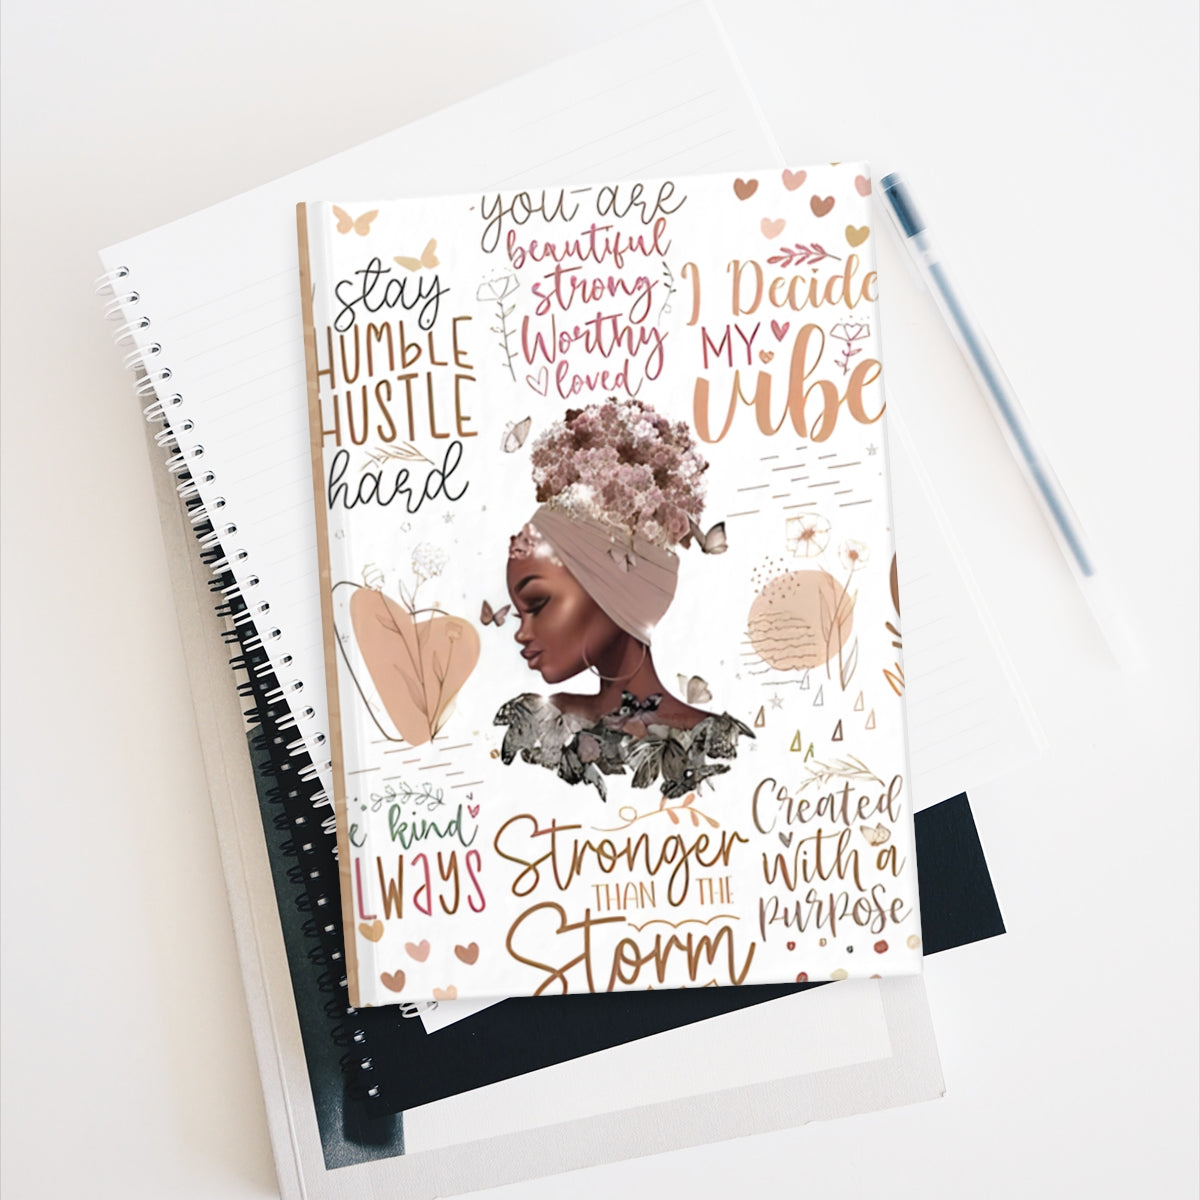 stay
HUMbLE
HUSTLE
hard
you are
beautiful
strong
Worthy
loved
I Decide
MY
vibe
e kind
LWAYS
Stronger
THAN THE
Storm
Created
with a
purpose